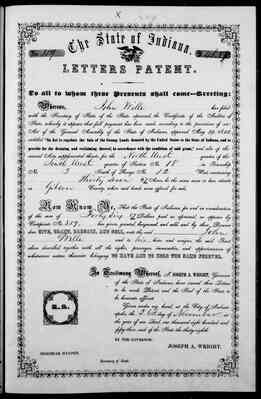 The State of Indiana.
LETTERS PATENT.
To all to whom these Presents shall come—Greeting:
Whereas, John Wills has filed
with the Secretary of State of the State aforesaid, the Certificate of the Auditor of
State, whereby it appears that full payment has been made according to the provisions of an
Act of the General Assembly of the State of Indiana, approved May 29, 1852,
entitled "An Act to regulate the Sale of the Swamp Lands donated by the United States to the State of Indiana, and to
provide for the draining and reclaiming thereof, in accordance with the condition of said grant," and acts of the
several Acts supplemental thereto for the North West quarter of the
South West quarter of Section No. 18 in Township
No. 3 South of Range No. 12 West containing
Acres, be the same more or less, situate in
Gibson County, when said lands were offered for sale.
Now Know Ye, That the State of Indiana, for and in consideration
of the sum of Dollars paid as aforesaid, as appears by
Certificate No. 389, has given, granted, bargained and sold, and by these Presents
does GIVE, GRANT, BARGAIN, AND SELL, unto the said John
Wills and to his heirs and assigns, the said Tract
above described, together with all the rights, privileges, immunities, and appurtenances of
whatsoever nature thereunto belonging, TO HAVE AND TO HOLD THE SAME FOREVER.
In Testimony Whereof, I, JOSEPH A. WRIGHT, Governor
of the State of Indiana, have caused these Letters
to be made Patent, and the Seal of the State to
be hereunto affixed.
Given under my hand, at the City of Indian-
apolis, the day of November in
the year of our Lord, one thousand eight hundred and
fifty-three, and of the State the thirty-eighth.
BY THE GOVERNOR,
JOSEPH A. WRIGHT.
Secretary of State.